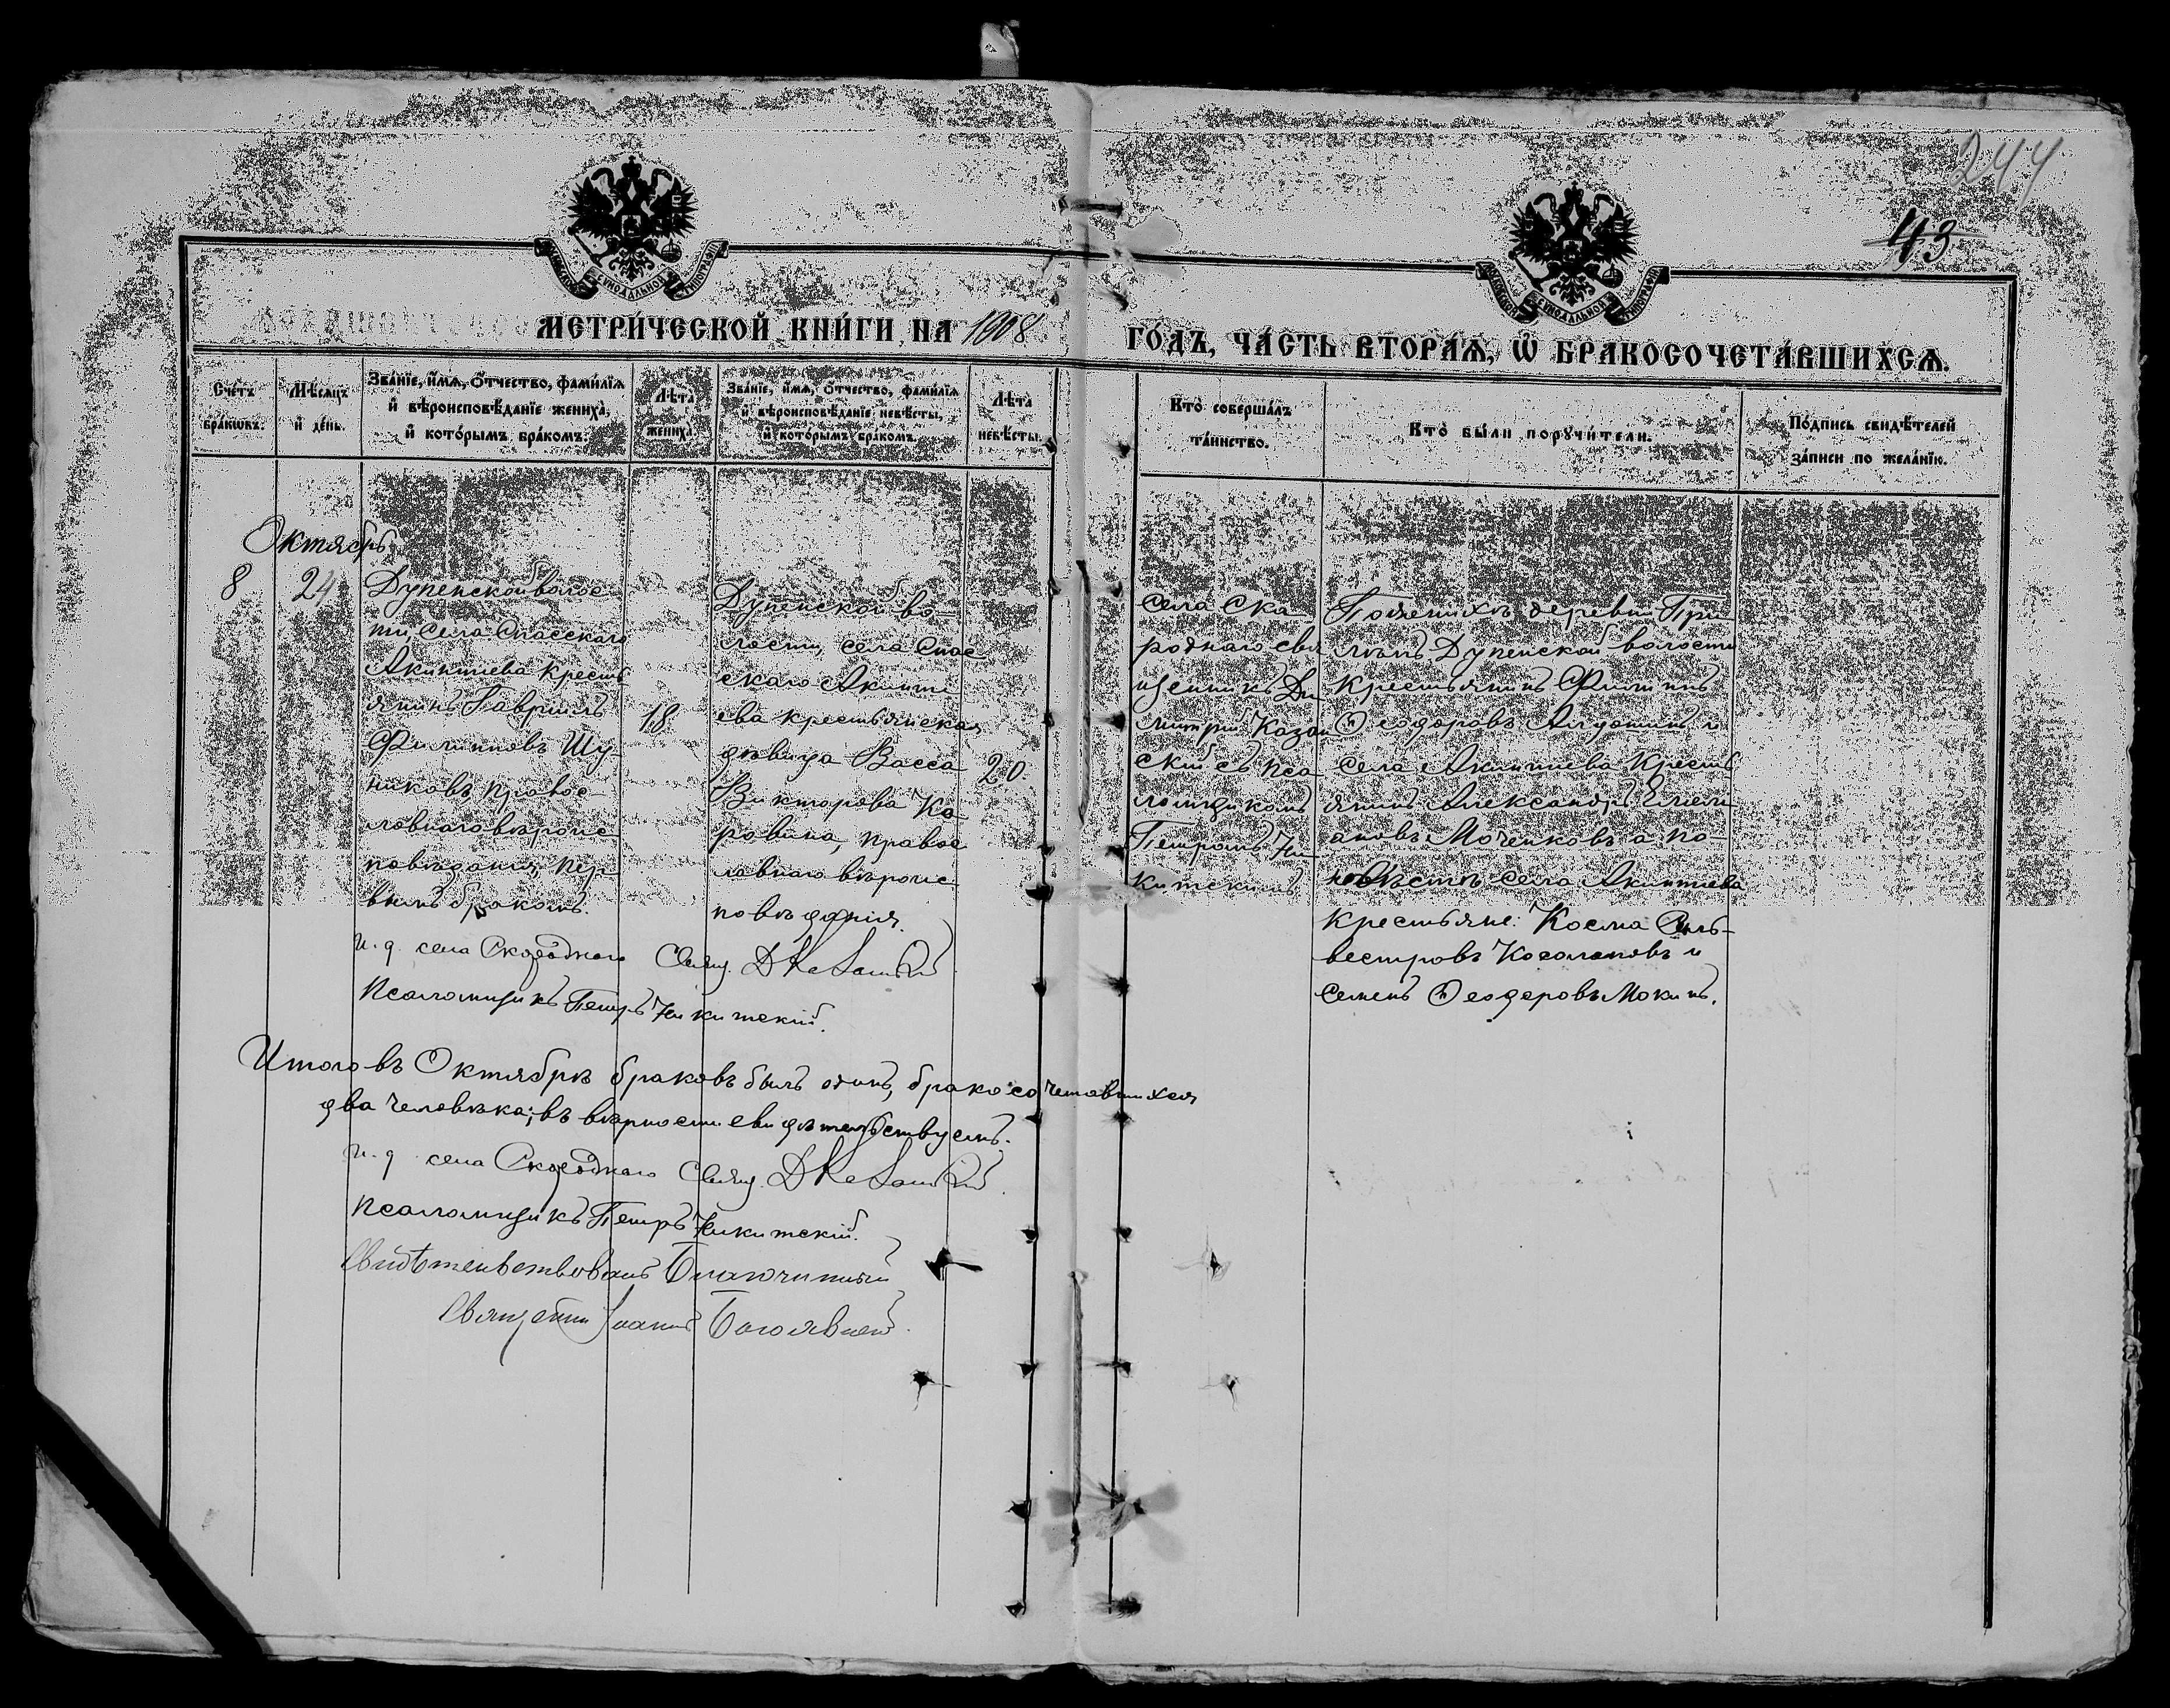 244
43
МЕТРИ́ЧЕСКОЙ КНИ́ГИ НА 1908
ГО́ДЪ, ЧА́СТЬ ВТОРА́Ѧ, Ѡ БРАКОСОЧЕТА́ВШИХСѦ.
Сче́тъ
бра́кωвъ.
Мѣ́сѧцъ
и҆ де́нь.
Зва́нїе, и҆́мѧ, ѻ҆́тчество, фами́лїѧ
и҆ вѣроисповѣ́данїе жениха̀,
и҆ кото́рымъ бра́комъ.
Лѣ́та
жениха̀.
Зва́нїе, и҆́мѧ, ѻ҆́тчество, фами́лїѧ
и҆ вѣроисповѣ́данїе невѣ́сты,
и҆ кото́рымъ бра́комъ.
Лѣ́та
невѣ́сты.
Кто̀ соверша́лъ
та́инство.
Кто̀ бы́ли порꙋчи́тели.
По́дпись свидѣ́телей
за́писи по жела́нїю.
Октябрь
8
24
Дупенской волос-
ти, села Спасскаго
Акинтиева кресть-
янинъ Гавриилъ
Филипповъ Шу-
никовъ, правос-
лавнаго вѣроис-
повѣданія, пер-
вымъ бракомъ.
18.
Дупенской во-
лости, села Спас-
скаго Акинти-
ева крестьянская
дѣвица Васса
Викторова Ко-
ровина, правос-
лавнаго вѣроис-
повѣданія.
20.
Села Ска-
роднаго свя
щенникъ Ди-
митрій Казан
скій съ пса-
ломщикомъ
Петромъ Ни-
китскимъ
По женихѣ деревни
Дупенской волости
крестьянинъ Филиппъ
Ѳеодоровъ и
села Акинтиева кресть
янинъ Александръ Емели
ановъ Моченковъ а по
невѣстѣ села Акинтиева
крестьяне: Косма Силь-
вестровъ Косолаповъ и
Семенъ Ѳеодоровъ Мокинъ.
и. д. села Скороднаго Свящ. Д Казанскій
Псаломщикъ Петръ Никитскій.
Итого въ Октябрѣ браковъ былъ одинъ, бракосочетавшихся
два человѣка; въ вѣрности свидѣтельствуемъ.
и. д. села Скороднаго Свящ. Д Казанскій
Псаломщикъ Петръ Никитскій.
Свидѣтельствовалъ Благочинный
Священникъ Іоаннъ